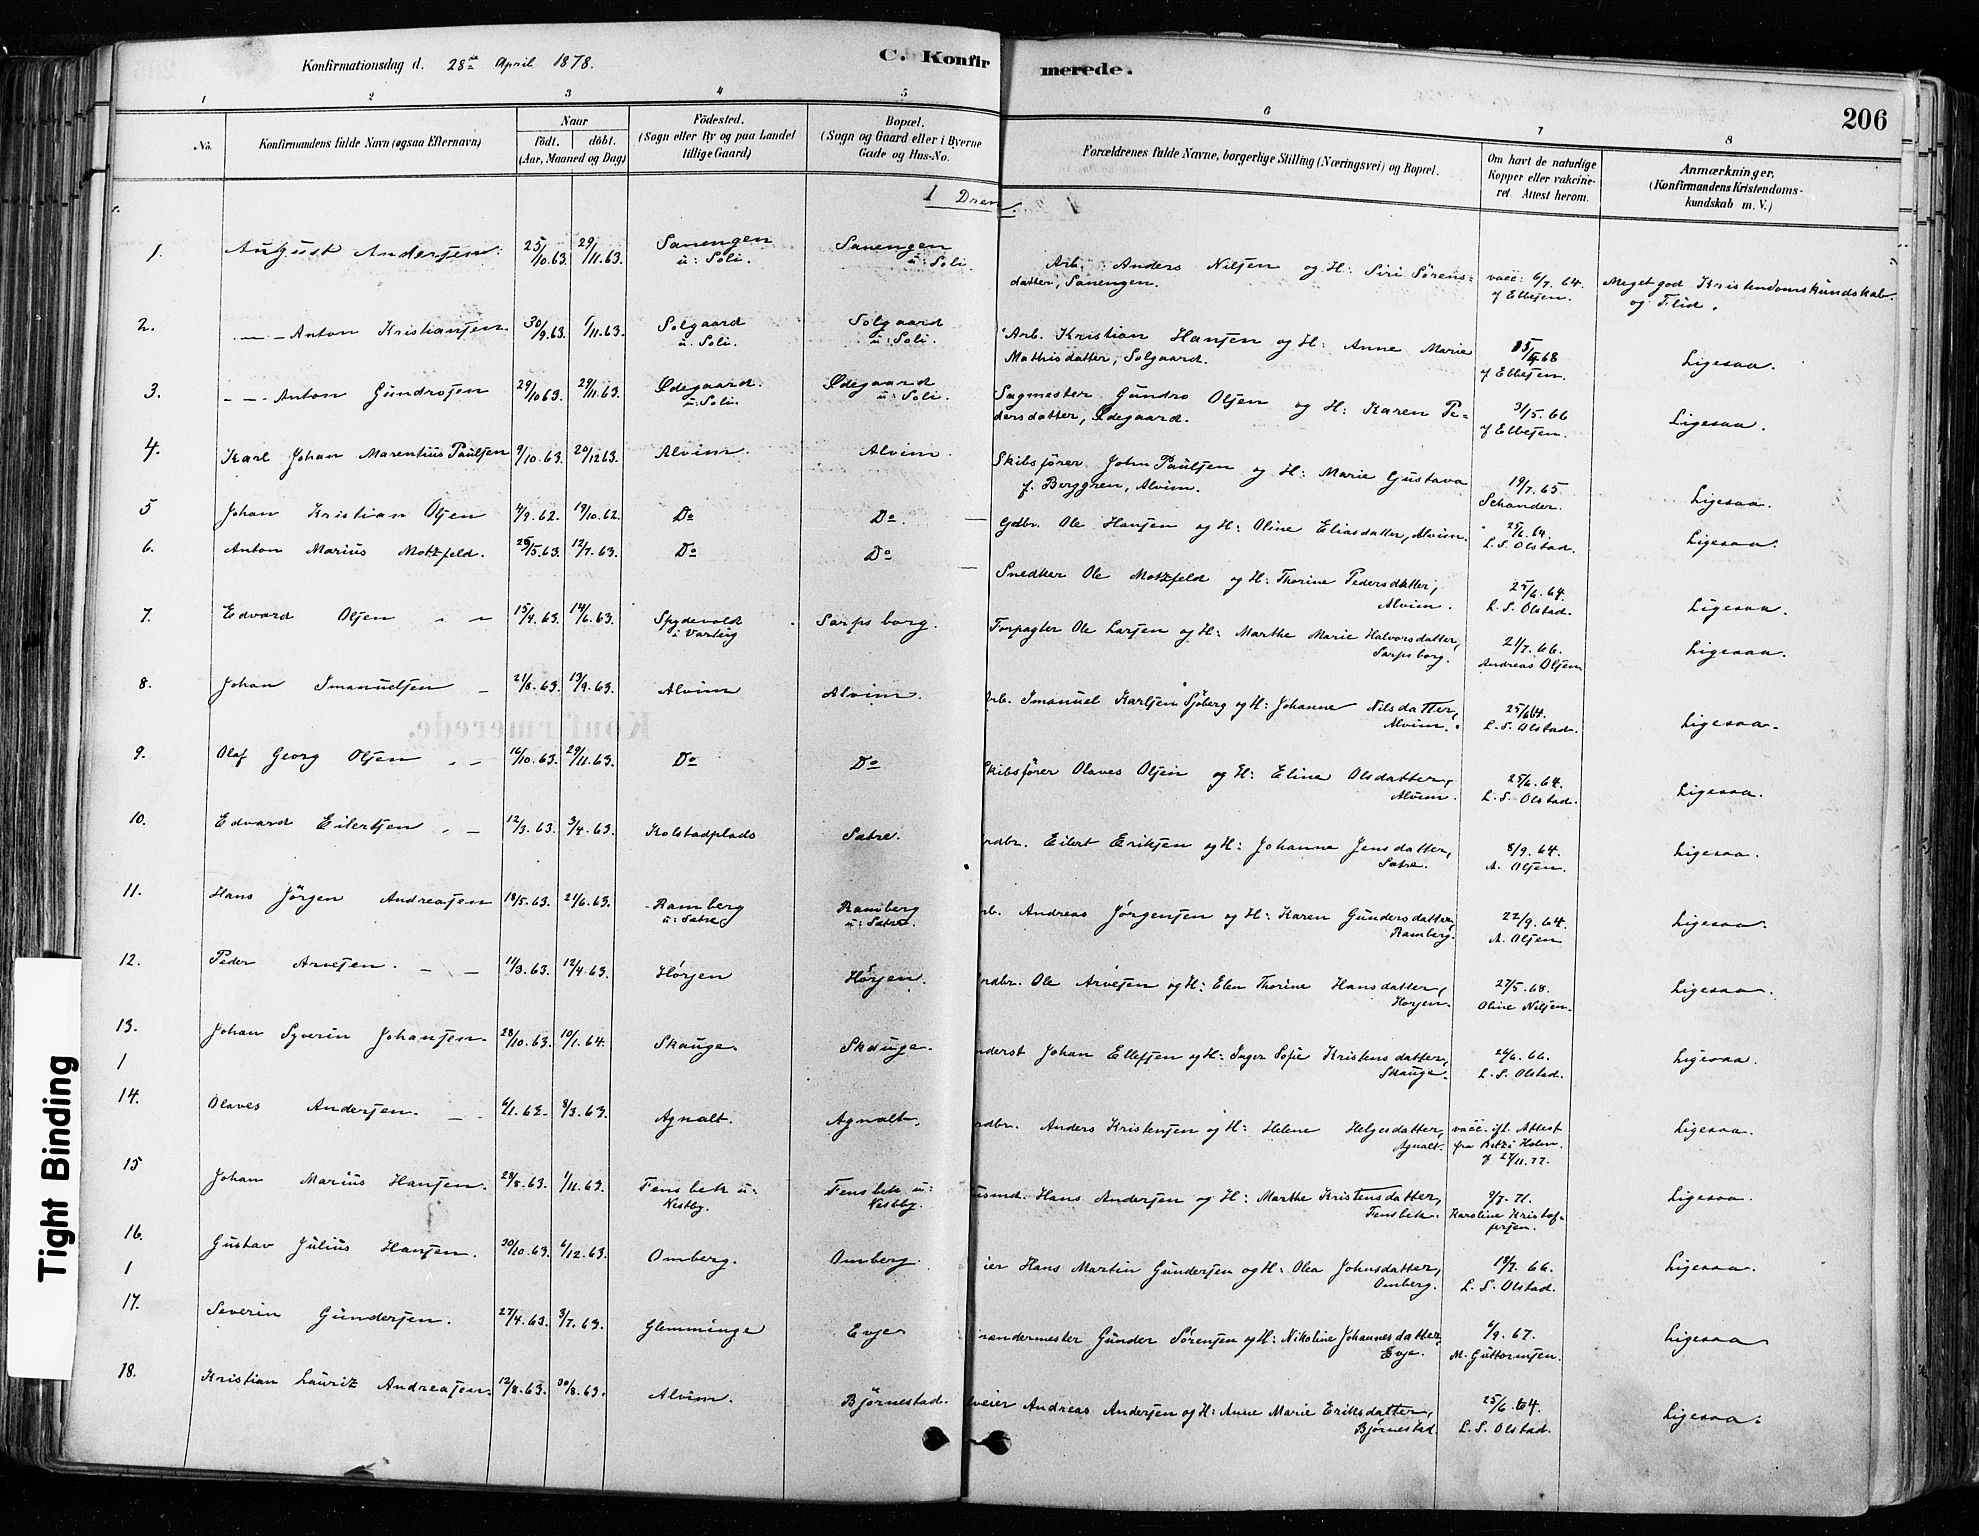 Konfirmationsdag d. 28de April 1878.
C. Konfirmerede.
206
1 2 3 4 5 6 7 8
No.
Konfirmandens fulde Navn (ogsaa Efternavn)
Naar
födt. döbt.
(Aar, Maaned og Dag)
Födested.
(Sogn eller By og paa Landet
lillige Gaard)
Bopæl.
(Sogn og Gaard eller i Byerne
Gade og Hus-No.
Forældrenes fulde Navne, borgerlige Stilling (Næringsvei) og Bopæl.
Om havt de naturlige
Kopper eller vakcine-
ret Attest herom.
Anmærkninger.
(Konfirmandens Kristendoms-
kundskab m. V.)
1 Dren.
1. August Andersen. 25/10.63. 29/11.63. Sanengen u: Soli. Sanengen u: Soli. Arb. Anders Nilsen og H: Siri Sörens- vacc: 6/7.64. Meget god Kristendomskundskab
datter, Sanengen. f Ebbesen. og Flid.
2. Anton Kristiansen. 30/9.63. 1/11.63. Solgaard u. Soli. Solgaard u: Soli. Arb. Kristian Hansen og H: Anne Marie Ligesaa.
Mathisdatter, Solgaard. f Ebbesen.
3. Anton Gundrosen 29/10 63. 29/11.63. Ødegaard. u: Soli. Ødegaard u: Soli. Sagmester Gundro Olsen og H: Karen Pe- 31/5.66 Ligesaa.
dersdatter, Ødegaard. f Ebbesen.
4. Karl Johan Marentius Paulsen 9/10.63. 20/12 63. Alvim. Alvim. Skibsfører John Paulsen og H: Marie Gustava 19/7.65 Ligesaa.
f. Berggren, Alvim. Schander.
5 Johan Kristian Olsen 4/9.62. 19/10.62. Do Do. Gdbr. Ole Hansen og H: Oline Eliasdatter, Alvim. 25/6.64. Ligesaa.
L. S. Olstad.
6. Anton Marius Motzfeld. 25/5.63. 12/7.63. Do Do Snedker Ole Motzfeld og H: Thorine Pedersdatter, 25/6.64. Ligesaa.
Alvim. L. S. Olstad.
7. Edvard Olsen 15/4.63. 14/6.63. Spydevold i Varteig Sarpsborg. Forpagter Ole Larsen og H: Marthe Marie Halvorsdatter, 21/7.66. Ligesaa.
Sarpsborg. Andreas Olsen
8. Johan Imanuelsen 21/8.63. 13/9.63. Alvim Alvim. Arb. Imanuel Karlsen Sjöberg og H: Johanne Nilsdatter, 25/6 64. Ligesaa.
Alvim. L. S. Olstad.
9. Olaf Georg Olsen 16/10.63. 29/11.63. Do Do Skibsfører Olaves Olsen og H: Eline Olsdatter, 25/6.64. Ligesaa.
Alvim. L. S. Olstad.
10. Edvard Eilertsen 12/3.63. 3/4.63. Kolstadplads Satre. rdbr. Eilert Eriksen og H: Johanne Jensdatter, 8/9.64. Ligesaa.
Satre. A. Olsen.
11. Hans Jörgen Andreasen 18/5.63. 21/6.63. Ramberg u: Satre. Ramberg u: Satre. rb. Andreas Jørgensen og H: Karen Gundersdatter, 22/9.64. Ligesaa.
Ramberg. A. Olsen
12. Peder Arvesen. 11/3.63. 12/4.63. Hörsen Hörsen. rdbr. Ole Arvesen og H: Elen Thorine Hansdatter, 27/5.68. Ligesaa.
Horsen. Oline Nilsen.
13. Johan Syverin Johansen. 28/10.63. 10/1.64. Skauge. Skauge. nderst Johan Ellefsen og H: Inger Sofie Kristensdatter, 26/6.66. Ligesaa.
1 Skauge. L. S. Olstad.
14. Olaves Andersen. 6/1.63. 8/3.63. Agnalt. Agnalt. rdbr. Anders Kristensen og H: Helene Helgesdatter, vacc. ifl. Attest Ligesaa.
Agnalt. fra Betzi Holm.
f 27/11.77.
15 Johan Marius Hansen. 28/8.63. 1/11.63. Tensbek u: Nestby. Tensbek u: Nestby. usmd. Hans Andersen og H: Marthe Kristensdatter, 9/7.71. Ligesaa.
Tensbek. Karoline Kristof-
fersen.
16. Gustav Julius Hansen. 30/10.63. 6/12.63. Omberg. Omberg. ier Hans Martin Gundersen og H: Olea Johnsdatter, 18/7.66. Ligesaa.
1 Omberg. L. S. Olstad.
17. Severin Gundersen. 27/4.63. 3/7.63. Glemminge Evje randermester Gunder Sörensen og H: Nikoline Johannesdatter, 6/9.67. Ligesaa
Evje. M. Guttormsen.
18. Kristian Lauritz Andreasen. 12/8.63. 30/8.63. Alvim. Björnestad. veier Andreas Andersen og H: Anne Marie Eriksdatter, 25/6.64. Ligesaa.
Bjørnestad. L. S. Olstad.
Tight Binding